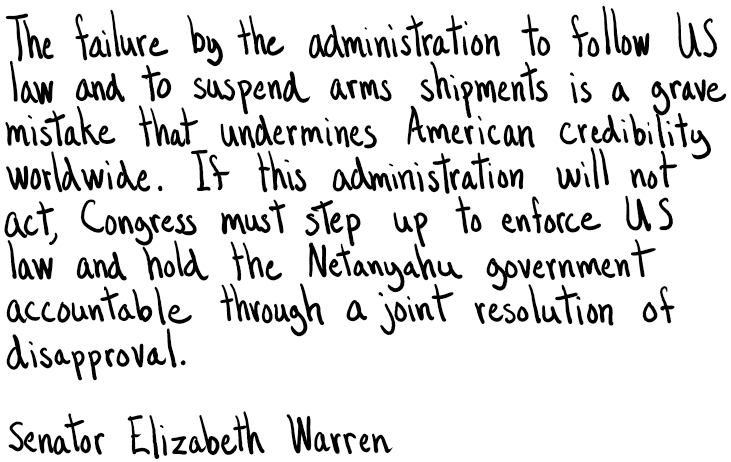 The failure by the administration to follow US
law and to suspend arms shipments is a grave
mistake that undermines American credibility
worldwide. If this administration will not
act, Congress must step up to enforce US
law and hold the Netanyahu government
accountable through a joint resolution of
disapproval.
Senator Elizabeth Warren